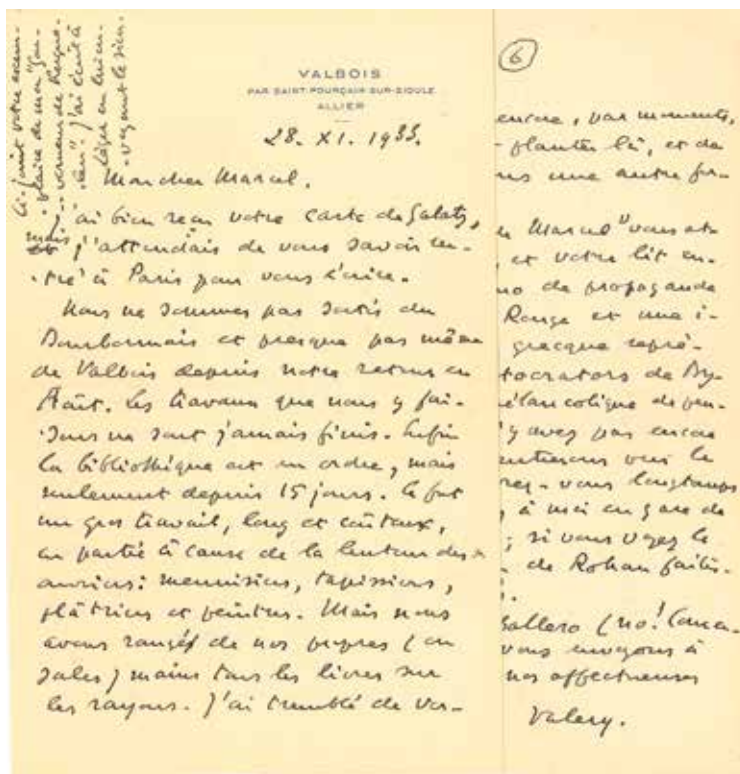 ci-joint votre exem-
-plaire de mon "gou-
-verneur de Ruque-
-leu". J'ai écrit à
Léger en lui en-
-voyant le sien.
VALBOIS
PAR SAINT POURÇAIN-SUR-SIOULE
ALLIER
28. XI. 1933.
Mon cher Marcel.
J'ai bien reçu votre carte de Galatz,
mais j'attendais de vous savoir ren-
-tré à Paris pour vous écrire.
Nous ne sommes pas sortis du
Bourbonnais et presque pas même
de Valbois depuis notre retour en
Août. Les travaux que nous y fai-
-sons ne sont jamais finis. Enfin
la bibliothèque est en ordre, mais
seulement depuis 15 jours. Ce fut
un gros travail, long et coûteux,
en partie à cause de la lenteur des
ouvriers: menuisiers, tapissiers,
plâtriers et peintres. Mais nous
avons rangés de nos propres (ou
sales) mains tous les livres sur
les rayons. J'ai tremblé de voir-
6
encore, par moments,
planter là, et de
une autre
Marcel" vous at-
et votre lit en-
de propagande
Rouge et une i-
grecque repré-
tocrators de By-
élancolique de
y avez pas encore
vers le
rez-vous longtemps
à moi en gare de
; si vous voyez le
de Rohan faites-
(no!
vous envoyons à
nos affectueuses
Valery.